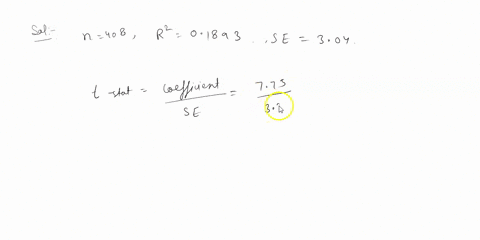 Sol:- n=408, R²= 0.1893 , SE = 3.04.
t-stat = coefficient / SE = 7.75 / 3.